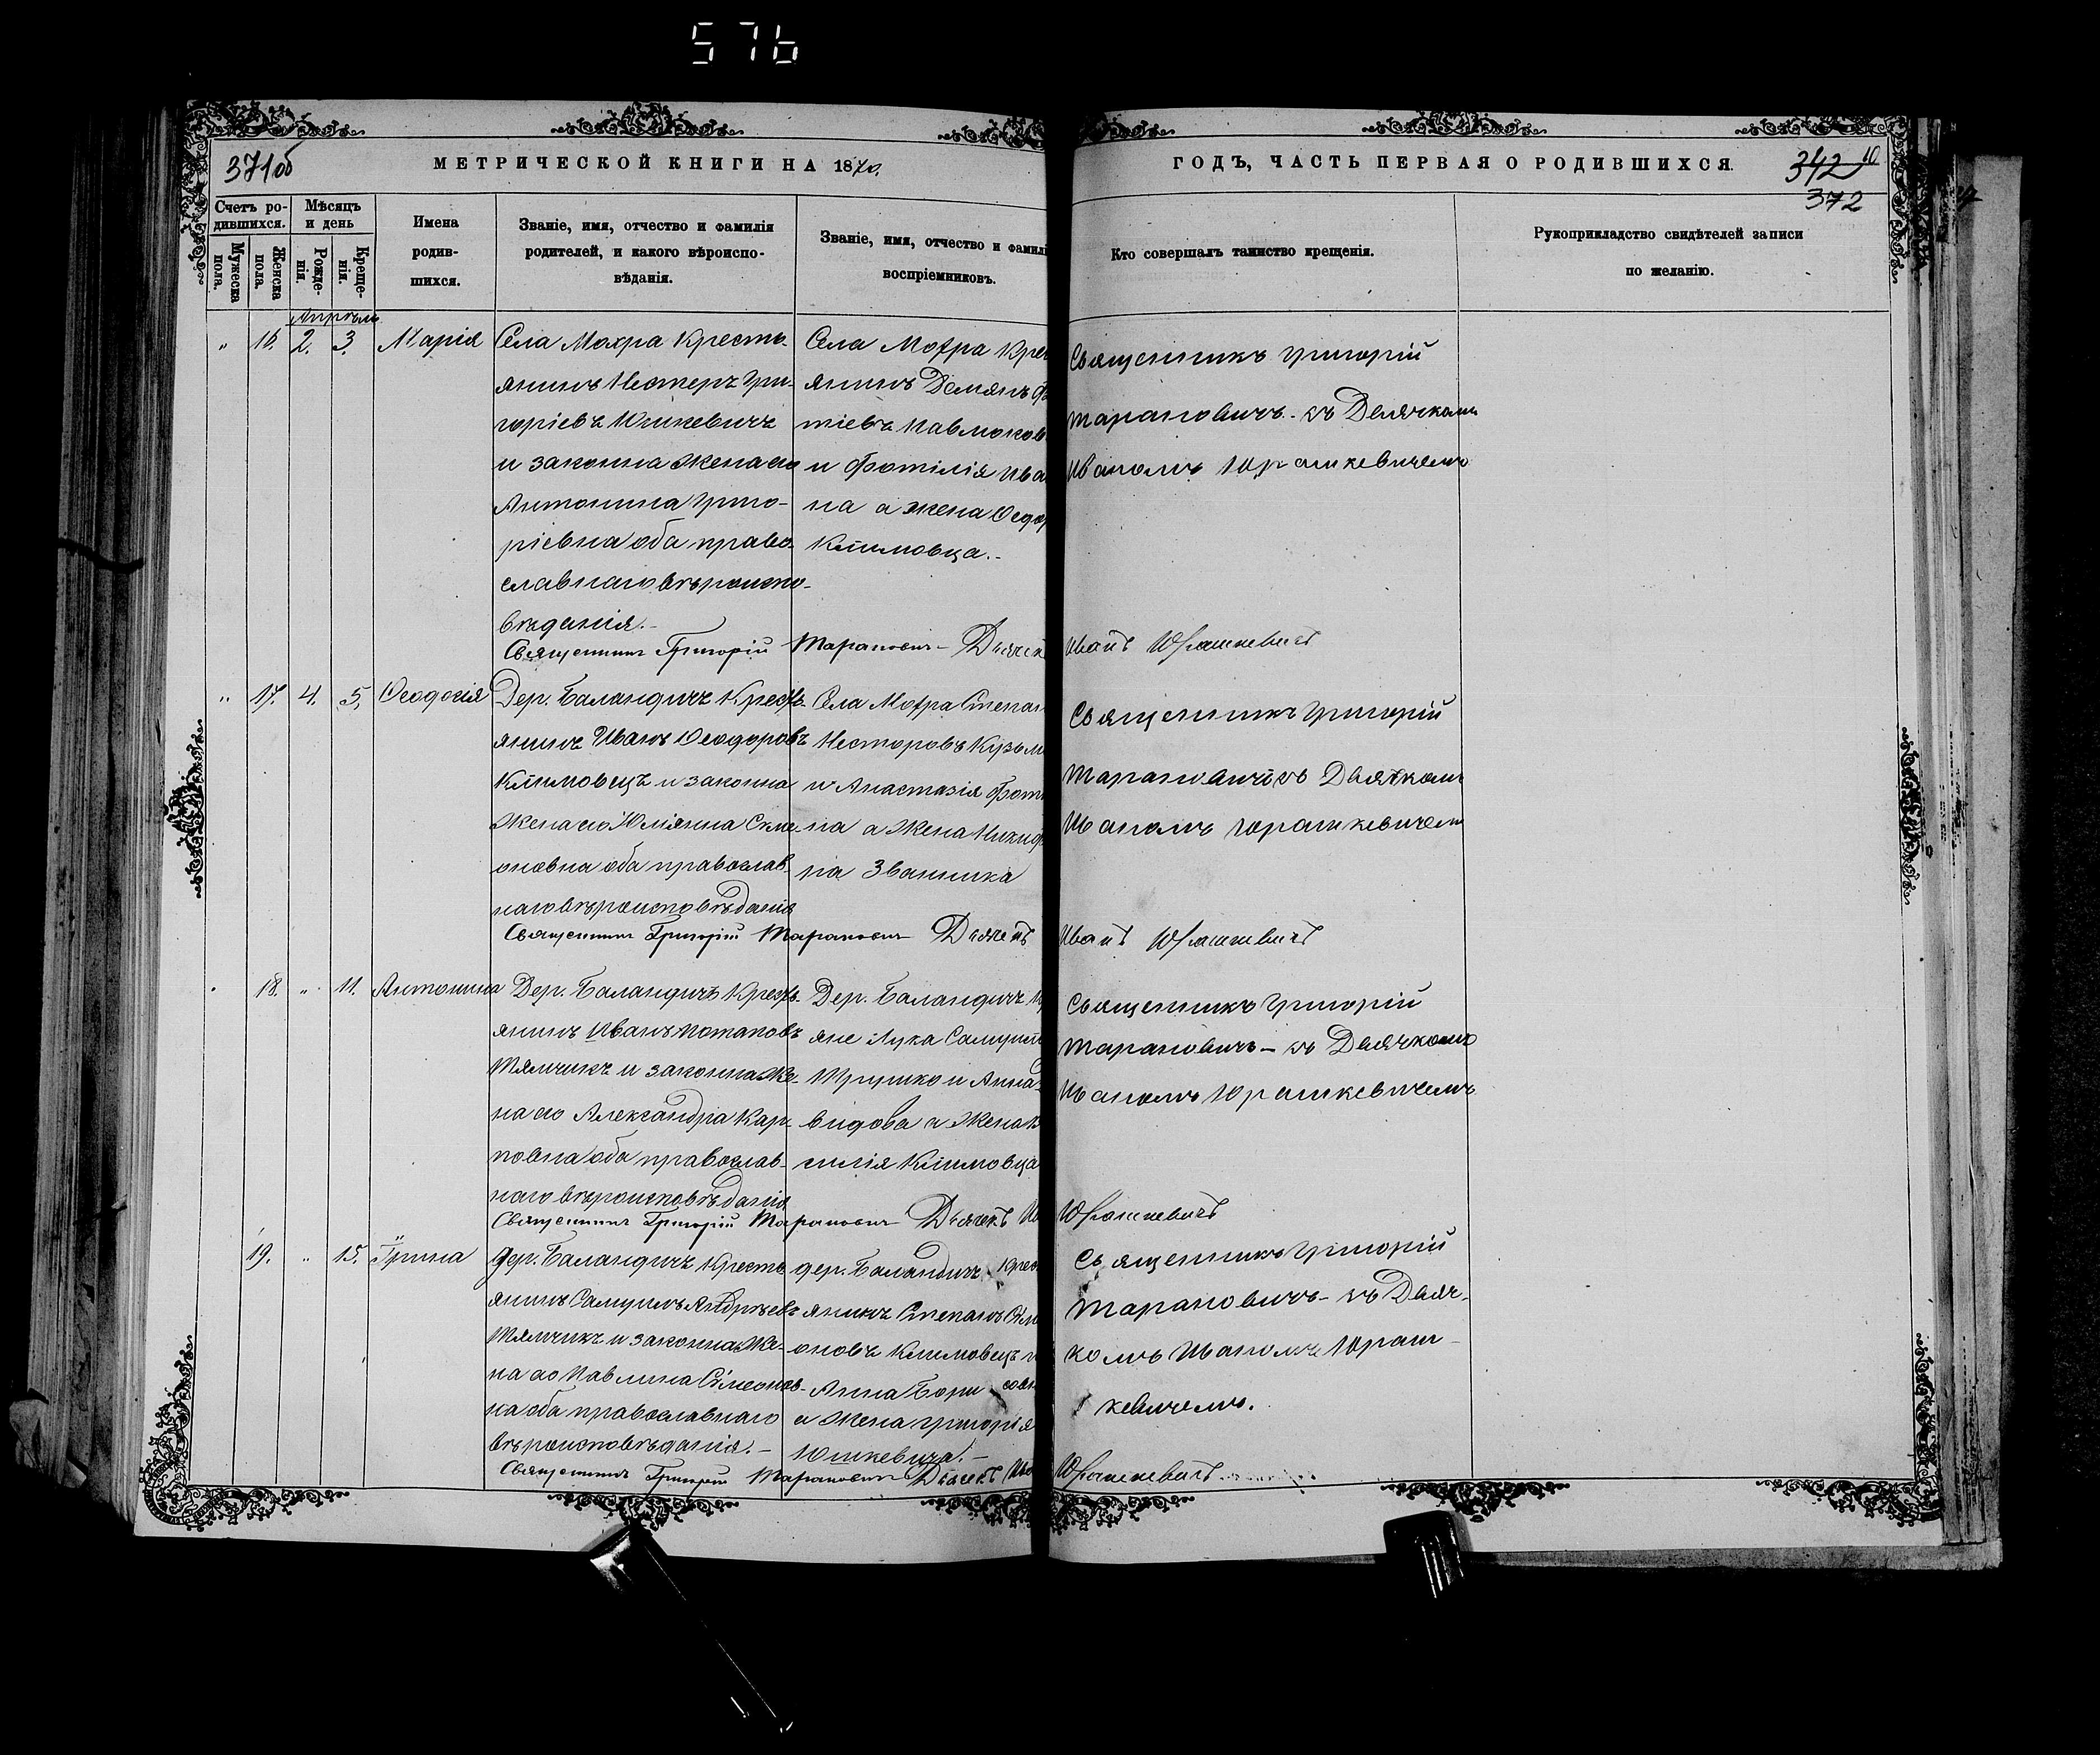 576
371об
МЕТРИЧЕСКОЙ КНИГИ НА 1870.
ГОДЪ, ЧАСТЬ ПЕРВАЯ О РОДИВШИХСЯ.
342 10
372
Счетъ родившихся.
Мужеска пола.
Женска пола.
Мѣсяцъ и день
Рожденія.
Крещенія.
Имена родившихся.
Званіе, имя, отчество и фамилія
родителей, и какого вѣроиспо-
вѣданія.
Званіе, имя, отчество и фамил
воспріемниковъ.
Кто совершалъ таинство крещенія.
Рукоприкладство свидѣтелей записи
по желанію.
Апрѣль
„ 16. 2. 3. Марія
Села Мохра Кресть-
янинъ Нестеръ Гри-
горіевъ Юшкевичъ
и законна жена его
Антонина Григо-
ріевна оба право-
славнаго вѣроиспо-
вѣданія.-
Села Мохра Крес
янинъ Демянъ
тіевъ
и Фотілія Ива
на а жена Ѳеодор
Климовца.-
Священникъ Григорій
Тарановичъ - съ Дьячкомъ
Иваномъ Юрашкевичемъ
Священникъ Григорій Тарановичъ - Дьячек Иванъ Юрашкевичъ
„ 17. 4. 5. Ѳеодосія
Дер. Баландичъ Кресть-
янинъ Иванъ Ѳеодоровъ
Климовецъ и законна
жена его Юліянна Симе-
оновна оба православ-
наго вѣроисповѣданія
Села Мохра Степан
Несторовъ Кузьм
и Анастазія Фоти
на а жена Никиф
па Званника
Священникъ Григорій
Тарановичъ съ Дьячкомъ
Иваномъ Юрашкевичем
Священникъ Григорій Тарановичъ Дьячекъ Иванъ Юрашкевичъ
18. „ 11. Антонина
Дер. Баландичъ Кресть-
янинъ Иванъ Потаповъ
Тямчикъ и законна же-
на его Александра Кар-
повна оба православ-
наго вѣроисповѣданія
Дер. Баландичъ К
яне Лука Самуил
Трушко и Анна
видова а жена В
силія Климовца
Священникъ Григорій
Тарановичъ - съ Дьячкомъ
Иваномъ Юрашкевичемъ
Священникъ Григорій Тарановичъ Дьячекъ Ив Юрашкевичъ
19. „ 15. Ирина
дер. Баландичъ Кресть
янинъ Самуилъ Андрѣевъ
Тямчикъ и законна же-
на его Павлина Симеонов-
на оба православнаго
вѣроисповѣданія.-
дер. Баландичъ Крес
янинъ Степанъ Сим
оновъ Климовецъ и
Анна Бори сов
а жена Григорія
Юшкевича.-
Священникъ Григорій
Тарановичъ - съ Дьяч-
комъ Иваномъ Юраш-
кевичемъ.
Священникъ Григорій Тарановичъ Дьячекъ Ив Юрашкевичъ